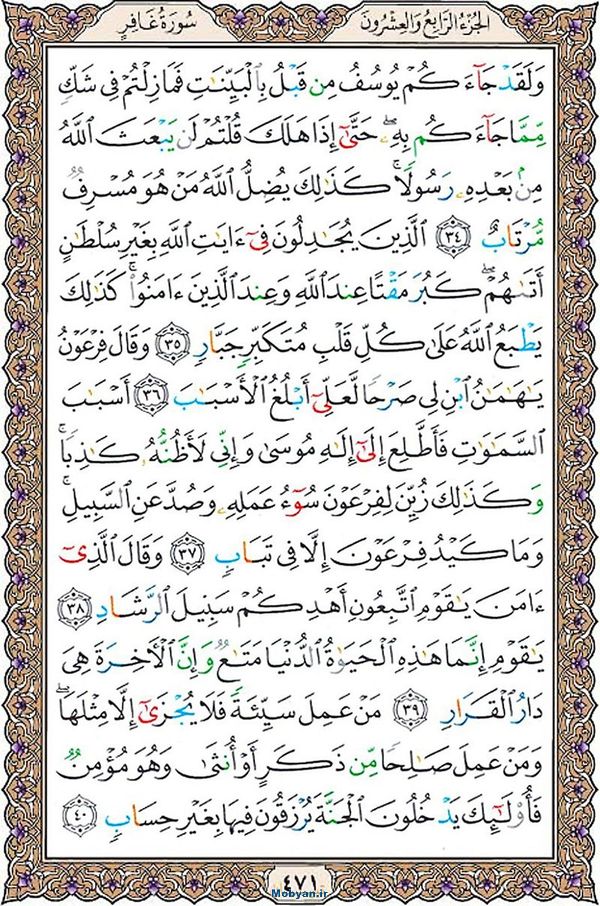 الجزء الرابع والعشرون
سورة غافر
وَلَقَدْ جَآءَكُمْ يُوسُفُ مِن قَبْلُ بِٱلْبَيِّنَٰتِ فَمَا زِلْتُمْ فِى شَكٍّ
مِّمَّا جَآءَكُم بِهِۦ ۖ حَتَّىٰٓ إِذَا هَلَكَ قُلْتُمْ لَن يَبْعَثَ ٱللَّهُ
مِنۢ بَعْدِهِۦ رَسُولًا ۚ كَذَٰلِكَ يُضِلُّ ٱللَّهُ مَنْ هُوَ مُسْرِفٌ
مُّرْتَابٌ ٣٤ ٱلَّذِينَ يُجَٰدِلُونَ فِىٓ ءَايَٰتِ ٱللَّهِ بِغَيْرِ سُلْطَٰنٍ
أَتَىٰهُمْ ۖ كَبُرَ مَقْتًا عِندَ ٱللَّهِ وَعِندَ ٱلَّذِينَ ءَامَنُوا۟ ۚ كَذَٰلِكَ
يَطْبَعُ ٱللَّهُ عَلَىٰ كُلِّ قَلْبِ مُتَكَبِّرٍ جَبَّارٍ ٣٥ وَقَالَ فِرْعَوْنُ
يَٰهَٰمَٰنُ ٱبْنِ لِى صَرْحًا لَّعَلِّىٓ أَبْلُغُ ٱلْأَسْبَٰبَ ٣٦ أَسْبَٰبَ
ٱلسَّمَٰوَٰتِ فَأَطَّلِعَ إِلَىٰٓ إِلَٰهِ مُوسَىٰ وَإِنِّى لَأَظُنُّهُۥ كَٰذِبًا ۚ
وَكَذَٰلِكَ زُيِّنَ لِفِرْعَوْنَ سُوٓءُ عَمَلِهِۦ وَصُدَّ عَنِ ٱلسَّبِيلِ ۚ
وَمَا كَيْدُ فِرْعَوْنَ إِلَّا فِى تَبَابٍ ٣٧ وَقَالَ ٱلَّذِىٓ
ءَامَنَ يَٰقَوْمِ ٱتَّبِعُونِ أَهْدِكُمْ سَبِيلَ ٱلرَّشَادِ ٣٨
يَٰقَوْمِ إِنَّمَا هَٰذِهِ ٱلْحَيَوٰةُ ٱلدُّنْيَا مَتَٰعٌ وَإِنَّ ٱلْءَاخِرَةَ هِىَ
دَارُ ٱلْقَرَارِ ٣٩ مَنْ عَمِلَ سَيِّئَةً فَلَا يُجْزَىٰٓ إِلَّا مِثْلَهَا ۖ
وَمَنْ عَمِلَ صَٰلِحًا مِّن ذَكَرٍ أَوْ أُنثَىٰ وَهُوَ مُؤْمِنٌ
فَأُو۟لَٰٓئِكَ يَدْخُلُونَ ٱلْجَنَّةَ يُرْزَقُونَ فِيهَا بِغَيْرِ حِسَابٍ ٤٠
٤٧١
Mobyan.ir